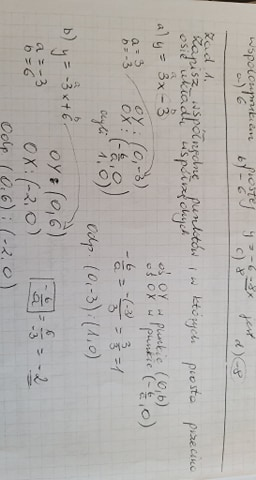 współczynnikiem prostej y = -6-8x jest
a) 6 b) -6 c) 8 d) -8
Zad 1.
Zapisz współrzędne punktów, w których prosta przecina
osie układu współrzędnych
a) y = 3x - 3
a b
a = 3
b = -3
oś OY w punkcie (0,b)
oś OX w punkcie (-b/a, 0)
OY: (0,-3)
OX: (-b/a, 0)
czyli (1, 0)
-b/a = -(-3)/3 = 3/3 = 1
Odp. (0,-3) i (1,0)
b) y = -3x + 6
a b
a = -3
b = 6
OY: (0,6)
OX: (-2,0)
-b/a = 6/-3 = -2
Odp. (0,6) i (-2,0)